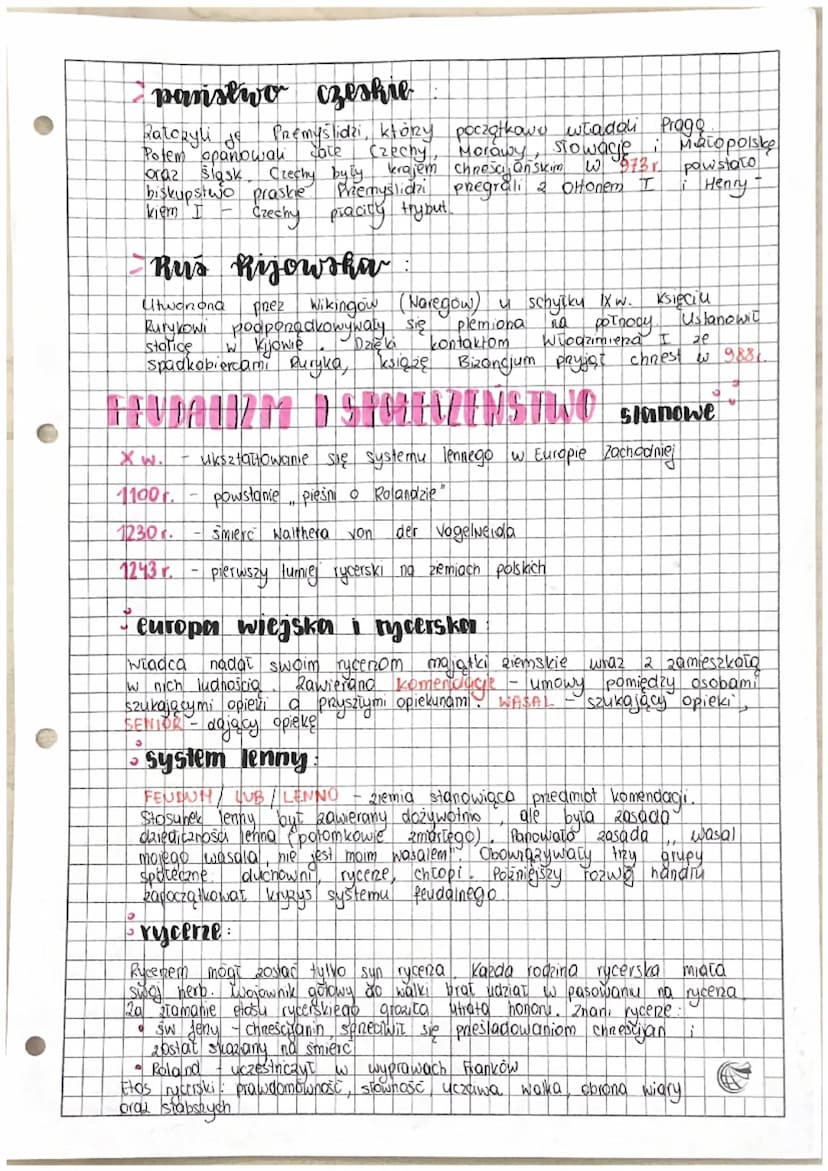 państwo czeskie :
Założyli je Przemyślidzi, którzy początkowo władali Pragą.
Potem opanowali całe Czechy, Morawy, Słowację i Małopolskę
oraz Śląsk. Czechy były krajem chrześcijańskim w 973r. powstało
biskupstwo praskie. Przemyślidzi przegrali z Ottonem I i Henry-
kiem I - Czechy płaciły trybut.
Ruś Kijowska :
Utworzona przez Wikingów (Waregów) u schyłku IX w. Księciu
Rurykowi podporządkowywały się plemiona na północy. Ustanowił
stolicę w Kijowie. Dzięki kontaktom Włodzimierza I ze
spadkobiercami Ruryka, książę Bizancjum przyjął chrzest w 988r.
FEUDALIZM I SPOŁECZEŃSTWO stanowe
X w. - ukształtowanie się systemu lennego w Europie Zachodniej
1100 r. - powstanie „pieśni o Rolandzie"
1230 r. - śmierć Walthera von der Vogelweida
1243 r. - pierwszy turniej rycerski na ziemiach polskich
europa wiejska i rycerska :
Władca nadał swoim rycerzom majątki ziemskie wraz z zamieszkałą
w nich ludnością. Zawierano komendacje - umowy pomiędzy osobami
szukającymi opieki a przyszłymi opiekunami. WASAL - szukający opieki,
SENIOR - dający opiekę
system lenny :
FEUDUM / LUB / LENNO - ziemia stanowiąca przedmiot komendacji.
Stosunek lenny był zawierany dożywotnio, ale była zasada
dziedziczności lenna (potomkowie zmarłego). Panowało zasada „wasal
mojego wasala, nie jest moim wasalem". Obowiązywały trzy grupy
społeczne: duchowni, rycerze, chłopi. Późniejszy rozwój handlu
zapoczątkował kryzys systemu feudalnego.
rycerze :
Rycerzem mógł zostać tylko syn rycerza. Każda rodzina rycerska miała
swój herb. Wojownik gotowy do walki brał udział w pasowaniu na rycerza.
Za złamanie etosu rycerskiego groziła utrata honoru. Znani rycerze:
• św Jerzy - chrześcijanin, sprzeciwił się prześladowaniom chrześcijan i
został skazany na śmierć
• Roland - uczestniczył w wyprawach Franków
Etos rycerski: prawdomówność, słowność, uczciwa walka, obrona wiary
oraz słabszych